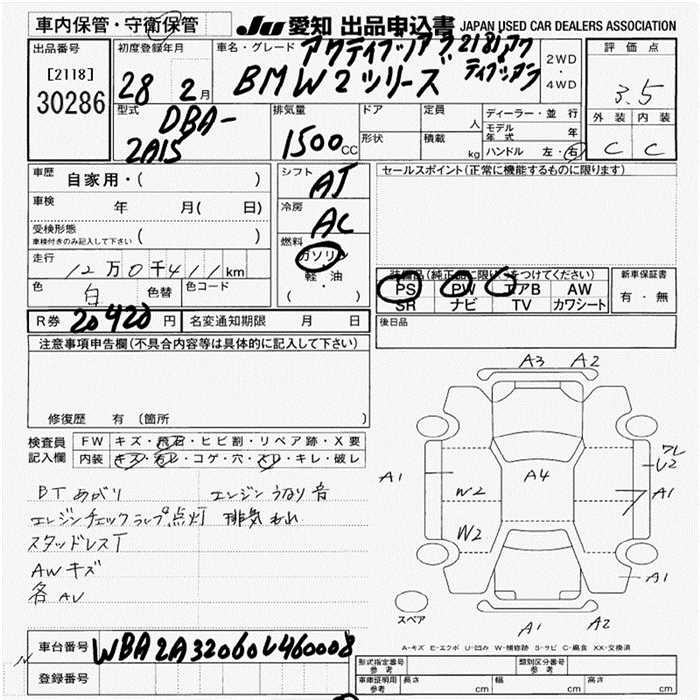 車内保管・守衛保管
JU 愛知 出品申込書 JAPAN USED CAR DEALERS ASSOCIATION
出品番号
[2118]
30286
初度登録年月
28 2月
車名・グレード アクティブツアラ 218iアク
BMW2シリーズ ティブツアラ
2WD
・
4WD
評価点
3.5
外装 内装
C C
型式
DBA-
2A15
排気量
1500cc
ドア
形状
定員
人
積載
kg
ディーラー・並行
モデル年式 年
ハンドル 左・右
車歴 自家用・( )
車検 年 月( 日)
受検形態
車検付きのみ記入して下さい ( )
走行 12万0千411km
色 白 色替 色コード
R券 20420円 名変通知期限 月 日
シフト
AT
冷房
AC
燃料
ガソリン
軽・油
( ・ )
セールスポイント(正常に機能するものに限ります)
装備品(純正品に限り○をつけてください)
PS PW エアB AW
SR ナビ TV カワシート
新車保証書
有・無
後日品
注意事項申告欄(不具合内容等は具体的に記入して下さい)
修復歴 有 (箇所 )
検査員
記入欄
FW キズ・飛石・ヒビ割・リペア跡・X要
内装 キズ・汚レ・コゲ・穴・スレ・キレ・破レ
BTあがり エンジンうなり音
エンジンチェックランプ点灯 排気もれ
スタッドレスT
AWキズ
各AU
A3 A2
A1
A4
W2
W2
ワレ
U2
A1
A1
A1 A2
スペア
A-キズ E-エクボ U-凹み W-補修跡 S-サビ C-腐食 XX-交換済
車台番号 WBA2A32060V460008
登録番号
形式指定番号
参考
類別区分番号
参考
車庫証明用
参考
長さ cm 幅 cm 高さ cm